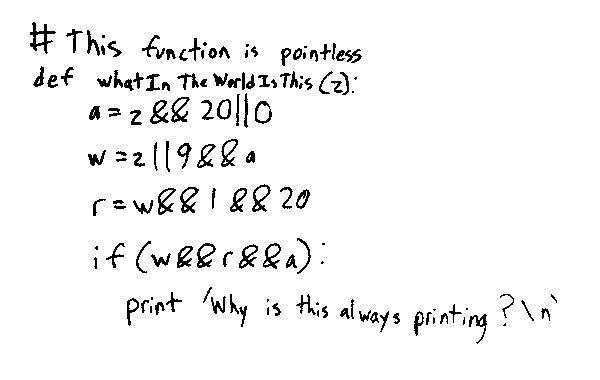 # This function is pointless
def whatInTheWorldIsThis(z):
a = z && 20||0
w = z||9&&a
r = w&& 1 && 20
if (w&&r&&a):
print 'Why is this always printing?\n'